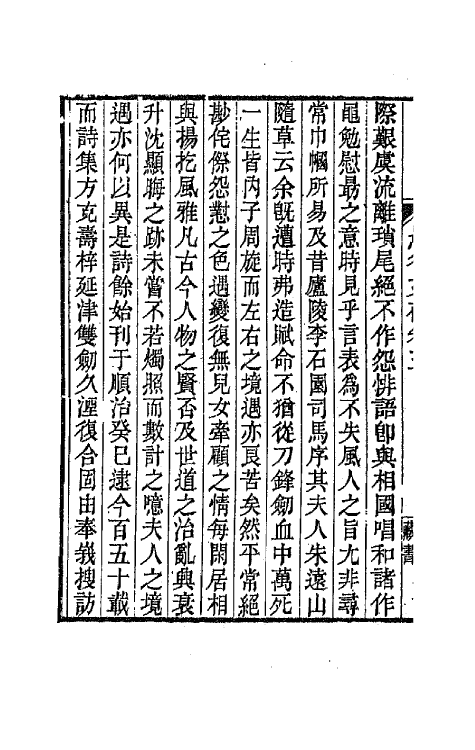 際艱虞流離瑣尾絕不作怨悱語卽與相國唱和諸作
黽勉慰勗之意時見乎言表爲不失風人之旨尢非尋
常巾幗所易及昔廬陵李石園司馬序其夫人朱遠山
隨草云余旣遭時弗造賦命不猶從刀鋒劒血中萬死
一生皆內子周旋而左右之境遇亦艮苦矣然平常絕
尠侘傺怨懟之色遇變復無兒女牽顧之情每閑居相
與揚扢風雅凡古今人物之賢否及世道之治亂興衰
升沈顯晦之跡未嘗不若燭照而數計之噫夫人之境
遇亦何以異是詩餘始刊于順治癸巳逮今百五十載
而詩集方克壽梓延津雙劒久湮復合固由奉峩搜訪